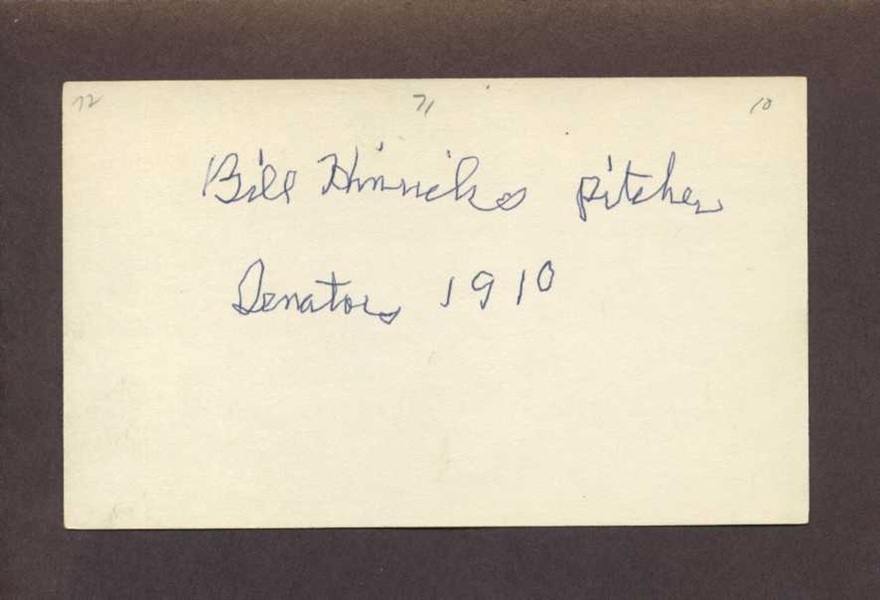 72 71 10
Bill Hinrichs pitcher
Senators 1910